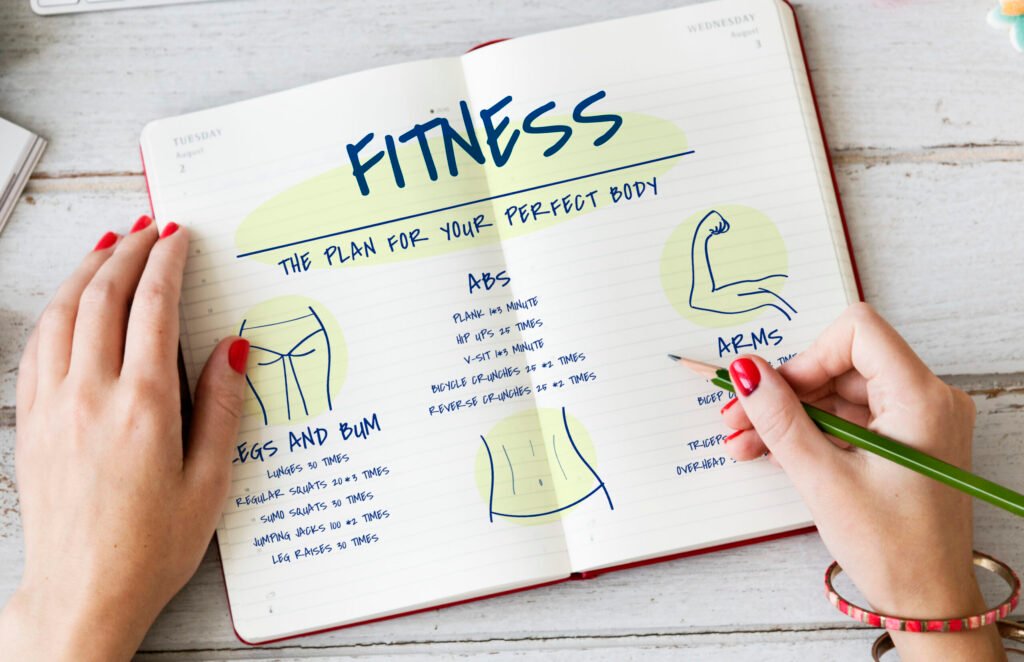 TUESDAY
August
2
WEDNESDAY
August
3
FITNESS
THE PLAN FOR YOUR PERFECT BODY
LEGS AND BUM
LUNGES 30 TIMES
REGULAR SQUATS 20*3 TIMES
SUMO SQUATS 30 TIMES
JUMPING JACKS 100 *2 TIMES
LEG RAISES 30 TIMES
ABS
PLANK 1*3 MINUTE
HIP UPS 25 TIMES
V-SIT 1*3 MINUTE
BICYCLE CRUNCHES 25 *2 TIMES
REVERSE CRUNCHES 25 *2 TIMES
ARMS
TIMES
BICEP
TRICEPS
OVERHEAD